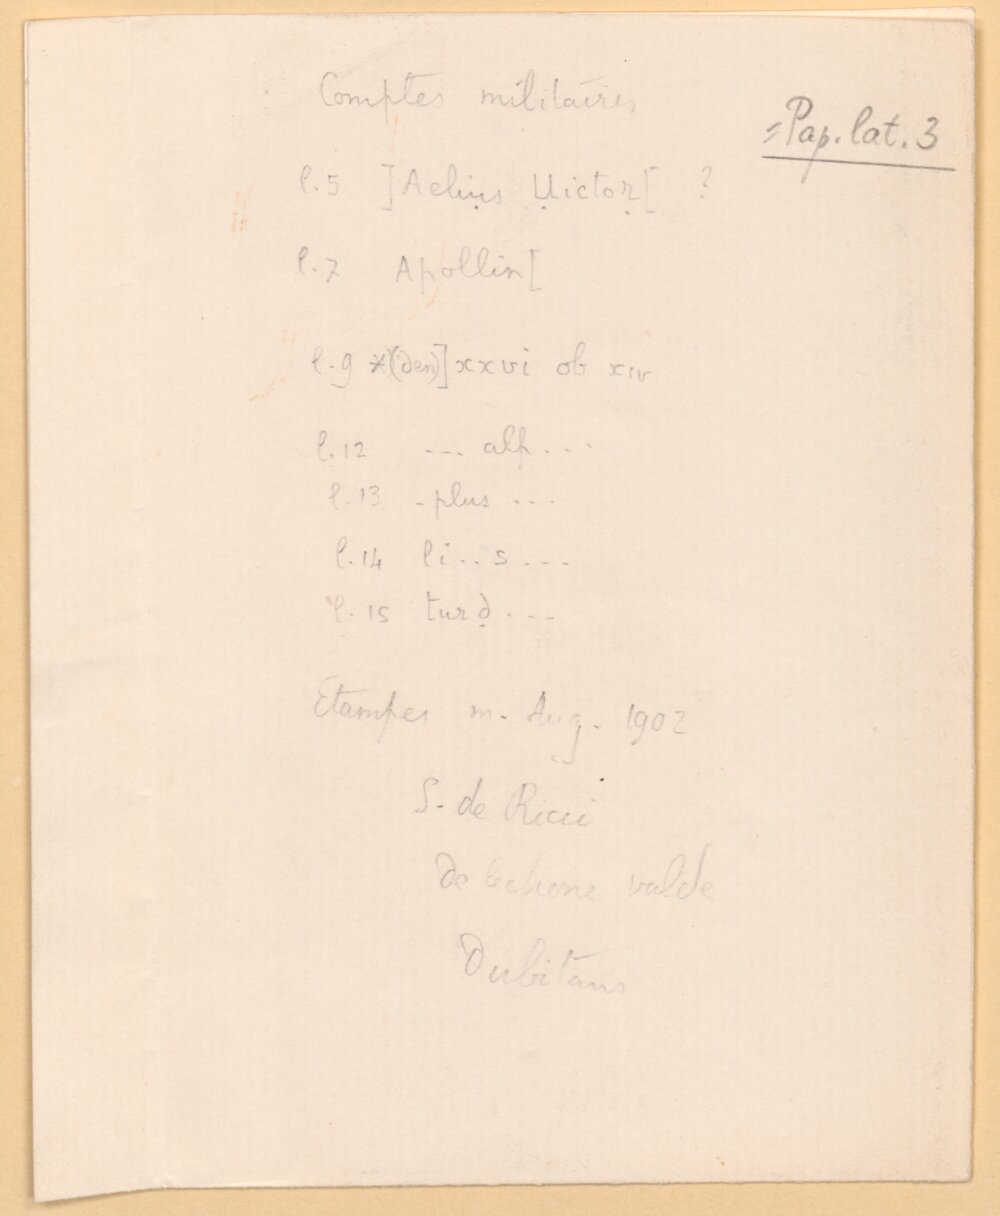 Comptes militaires
= Pap. lat. 3
l. 5 ]Aeliụs Ụictoṛ[ ?
l. 7 Apollin[
l. 9 *(den)] xxvi ob xiv
l. 12 --- alp...
l. 13 - plus ...
l. 14 li..s...
l. 15 turḍ...
Etampes m. Aug. 1902
S. de Ricci
de lectione valde
dubitans